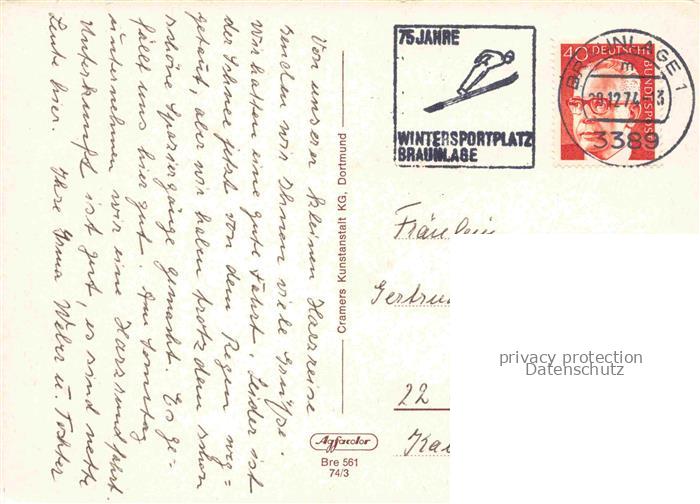 Von unserer kleinen Harzreise
senden wir Ihnen viele Grüße.
Wir hatten eine gute Fahrt, leider ist
der Schnee jetzt von dem Regen weg=
getaut, aber wir haben trotzdem schon
schöne Spaziergänge gemacht. Es ge=
fällt uns hier gut. Am Sonntag
unternehmen wir eine Harzrundfahrt.
Unterkunft ist gut, es sind nette
Leute hier. Ihre Irma Weber u. Tochter
Cramers Kunstanstalt KG, Dortmund
Agfacolor
Bre 561
74/3
75 JAHRE
WINTERSPORTPLATZ
BRAUNLAGE
40 DEUTSCHE BUNDESPOST
BRAUNLAGE 1
m
12.74
3
3389
Fräulein
Gertru
22
privacy protection
Datenschutz